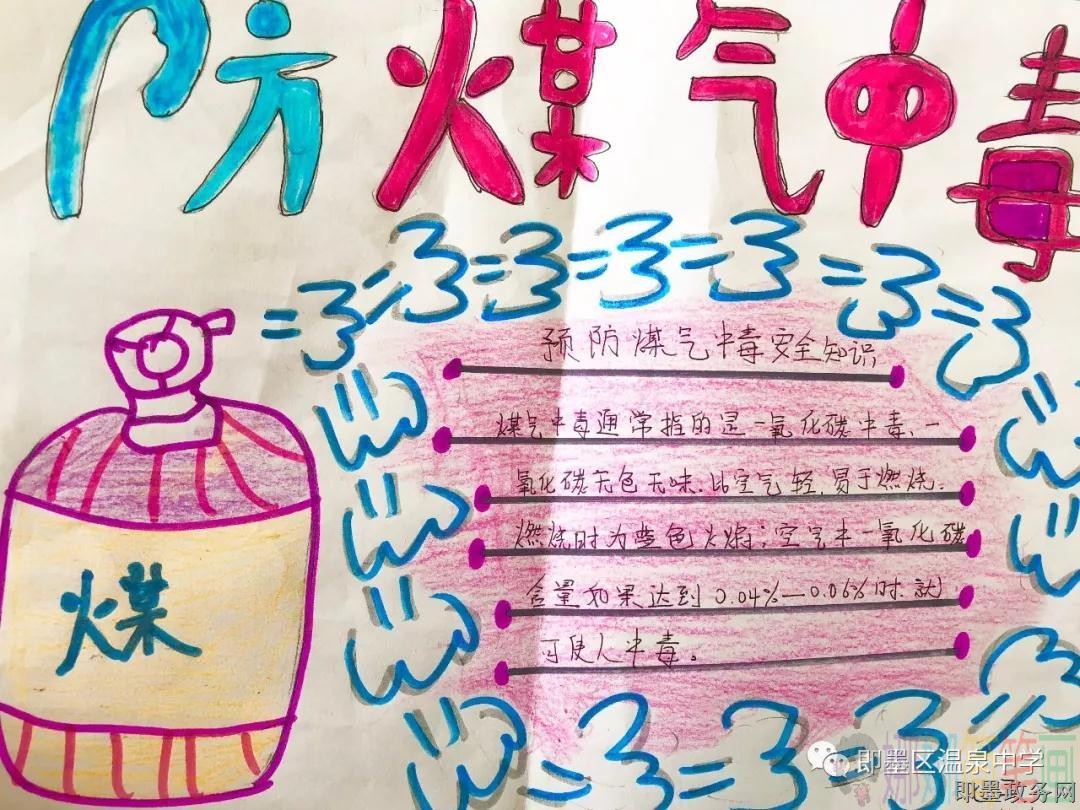 防煤气中毒
预防煤气中毒安全知识
煤气中毒通常指的是一氧化碳中毒、一
氧化碳无色无味.比空气轻,易于燃烧.
燃烧时为蓝色火焰;空气中一氧化碳
含量如果达到0.04%—0.06%时.就
可使人中毒。
煤
即墨区温泉中学
即墨政务网